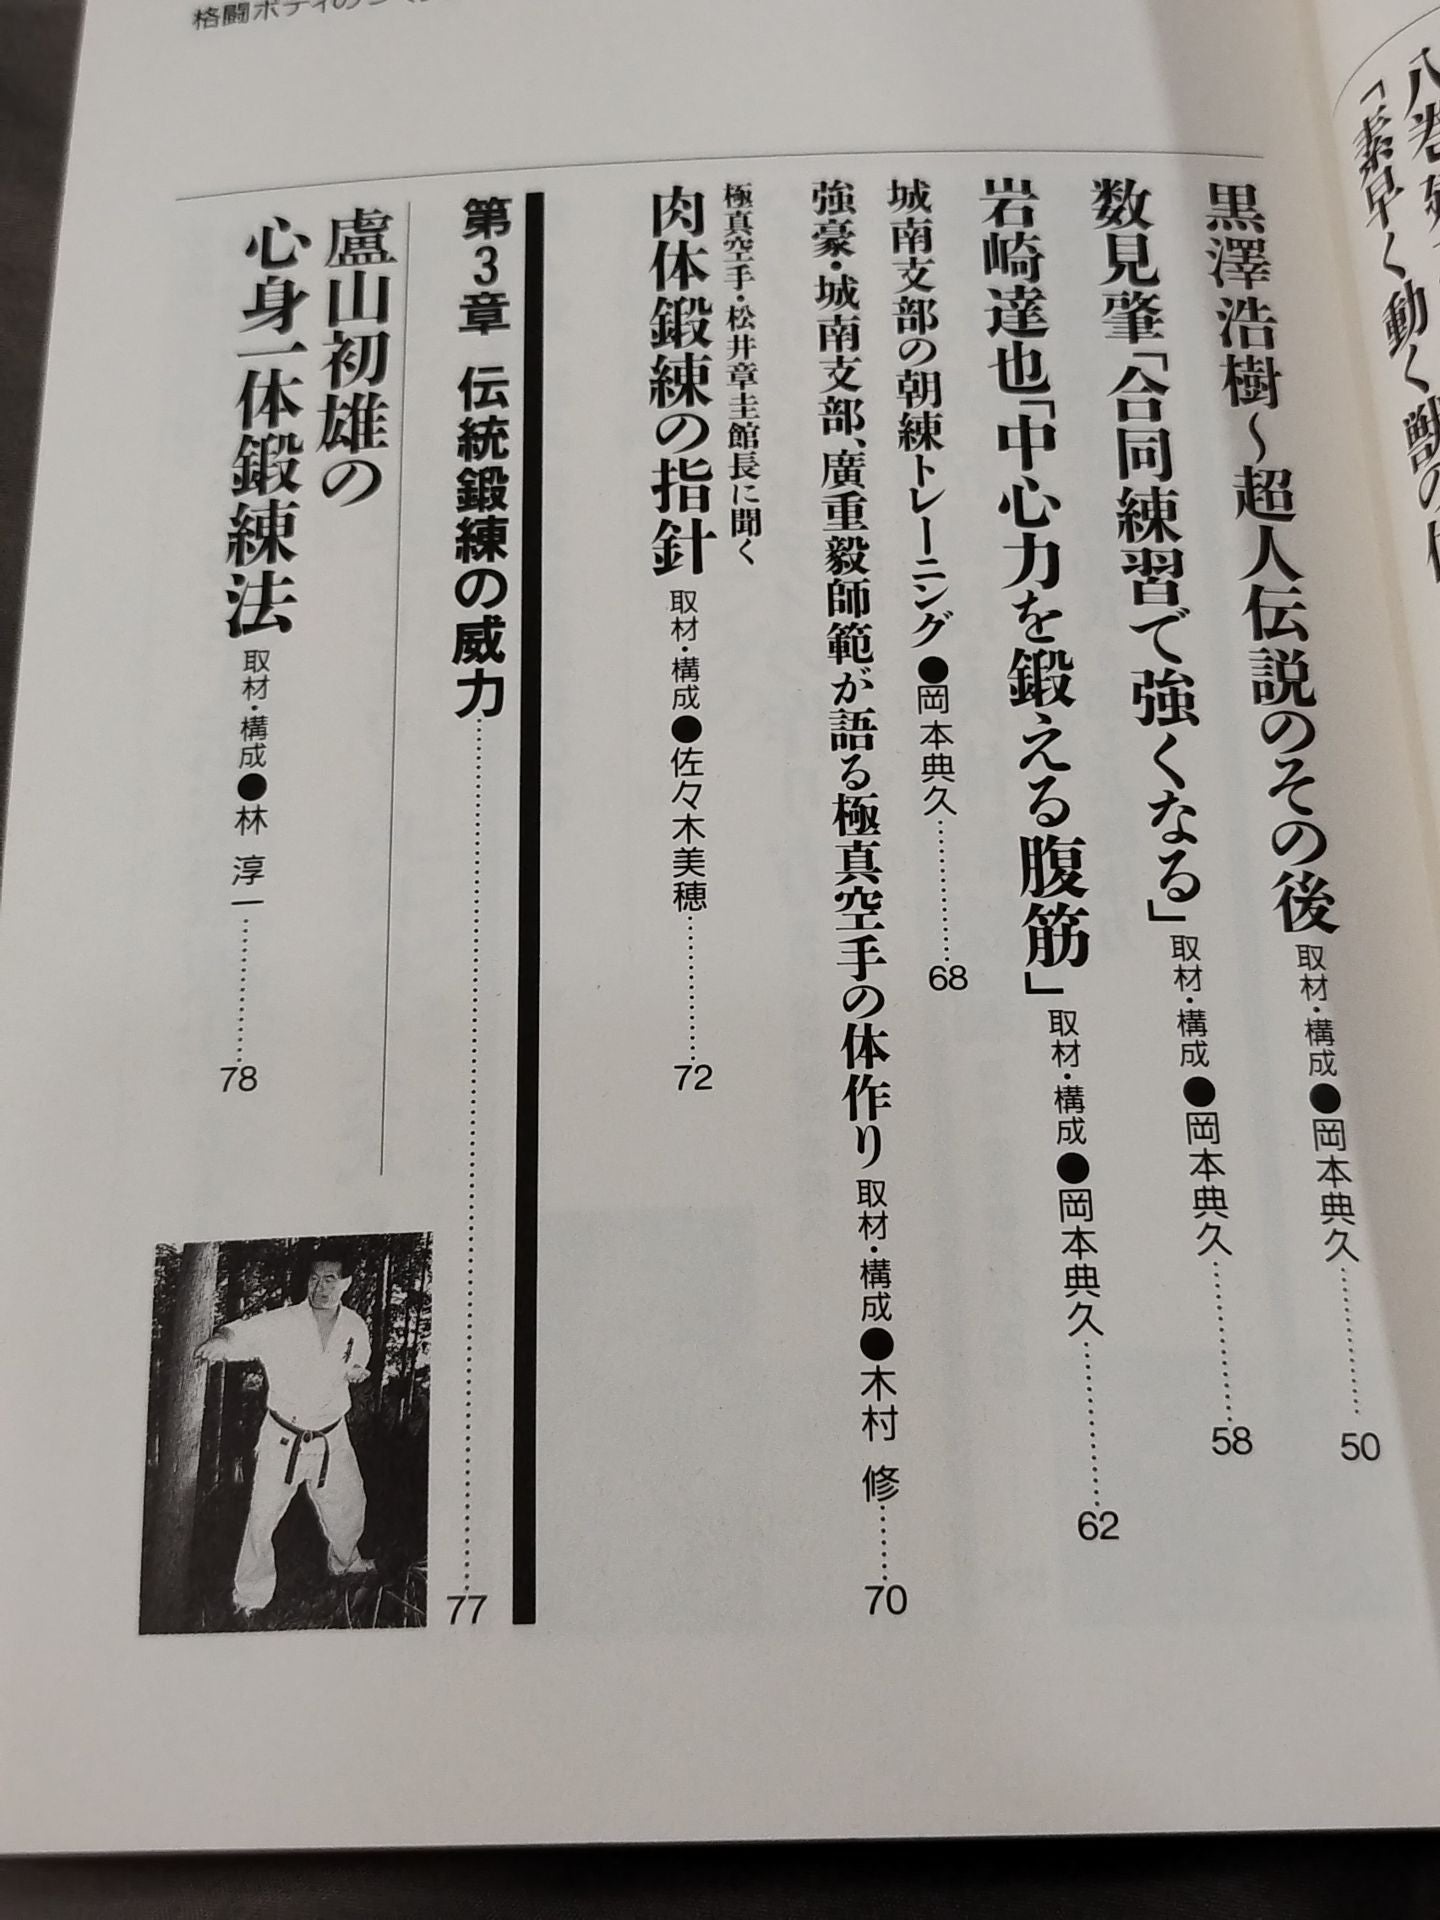 「素早く動く獣の
黒澤浩樹～超人伝説のその後 取材・構成●岡本典久……………50
数見肇「合同練習で強くなる」 取材・構成●岡本典久……………58
岩崎達也「中心力を鍛える腹筋」 取材・構成●岡本典久……………62
城南支部の朝練トレーニング●岡本典久……………68
強豪・城南支部、廣重毅師範が語る極真空手の体作り 取材・構成●木村 修………70
極真空手・松井章圭館長に聞く
肉体鍛練の指針 取材・構成●佐々木美穂……………72
第3章 伝統鍛練の威力……………77
盧山初雄の
心身一体鍛練法 取材・構成●林 淳一……………78